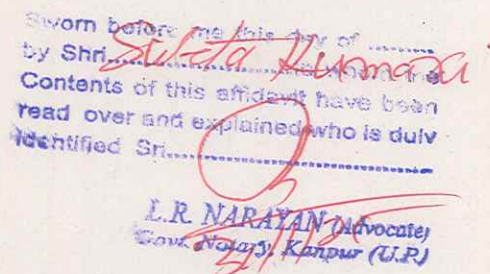 Sworn before me this day of ........
by Shri................
Contents of this affidavit have been
read over and explained who is duly
identified Sri................................
L.R. NARAYAN (Advocate)
Govt. Notary, Kanpur (U.P.)